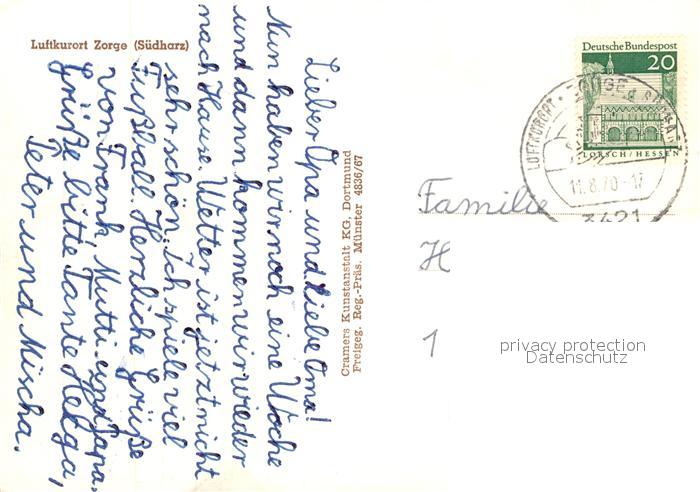 Luftkurort Zorge (Südharz)
Lieber Opa und liebe Oma!
Nun haben wir noch eine Woche
und dann kommen wir wieder
nach Hause. Wetter ist jetzt nicht
sehr schön. Ich spiele viel
Fußball. Herzliche Grüße
von Frank, Mutti und Papa.
Grüße bitte Tante Helga,
Peter und Mischa.
Cramers Kunstanstalt KG. Dortmund
Freigeg. Reg.-Präs. Münster 4836/67
Deutsche Bundespost
20
LORSCH/HESSEN
LUFTKURORT · ZORGE
11.8.70-17
3421
Familie
H
1
privacy protection
Datenschutz